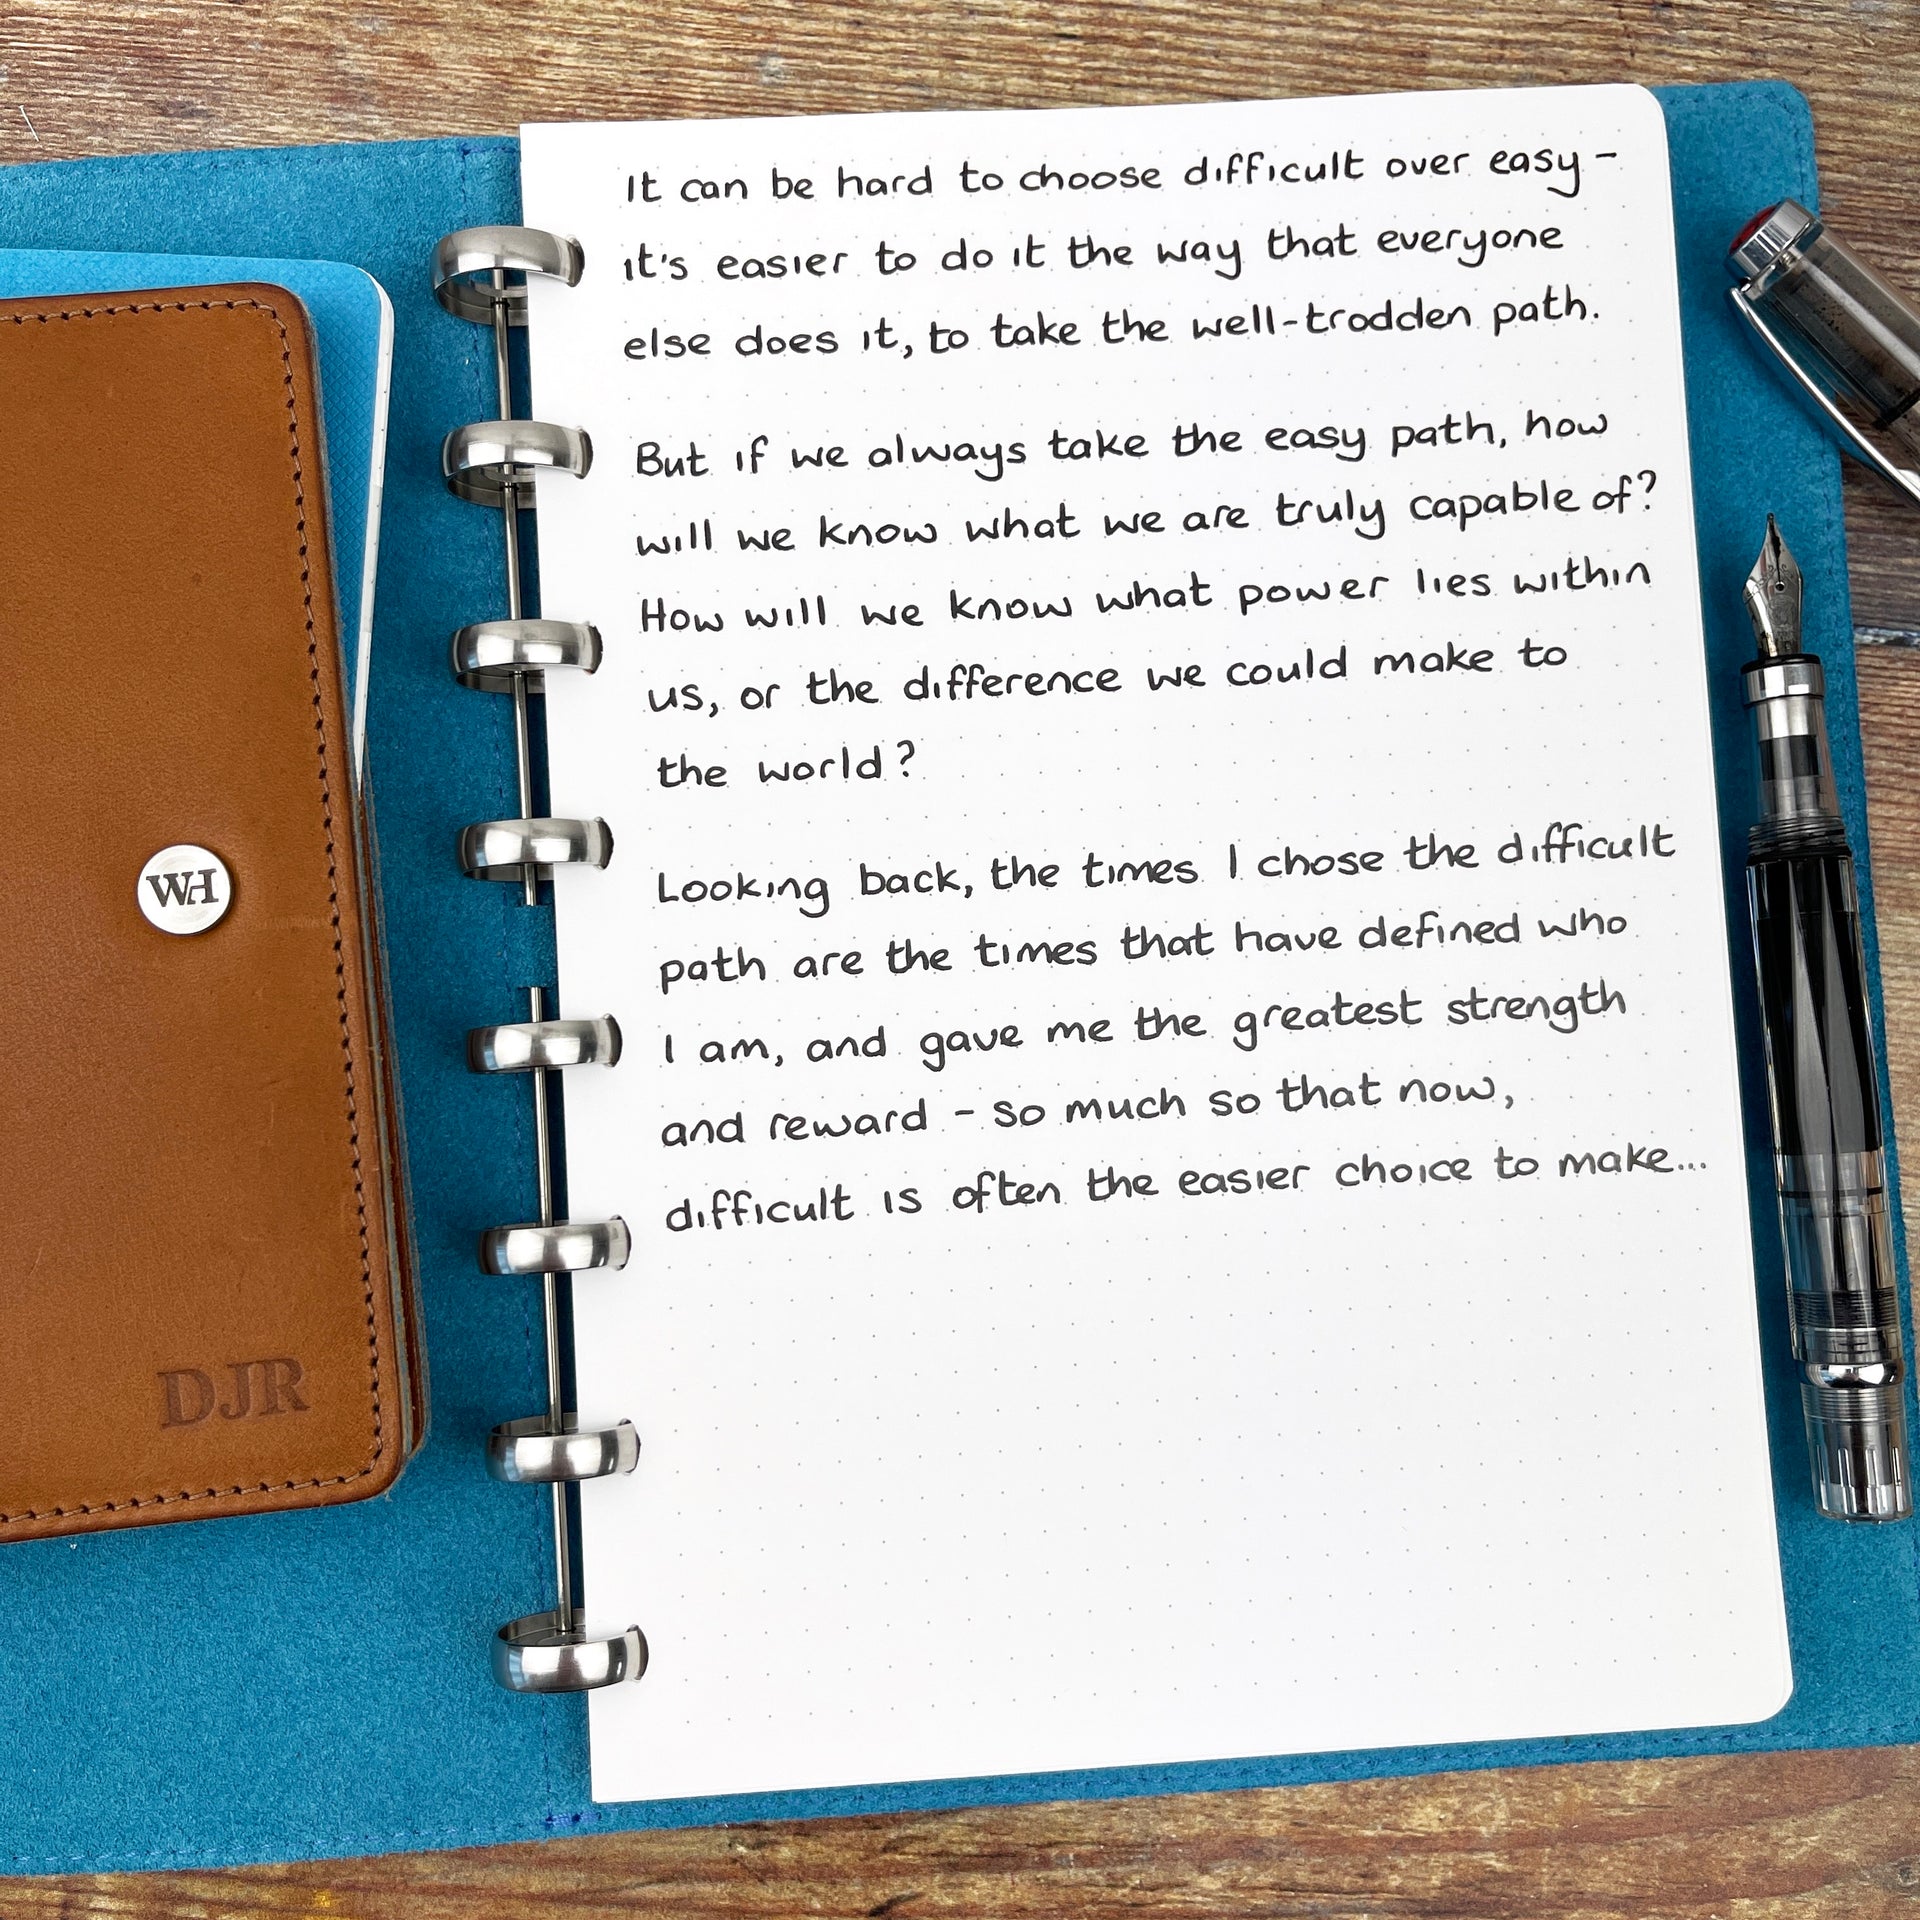 It can be hard to choose difficult over easy -
it's easier to do it the way that everyone
else does it, to take the well-trodden path.
But if we always take the easy path, how
will we know what we are truly capable of?
How will we know what power lies within
us, or the difference we could make to
the world?
Looking back, the times I chose the difficult
path are the times that have defined who
I am, and gave me the greatest strength
and reward - so much so that now,
difficult is often the easier choice to make...
WH
DJR